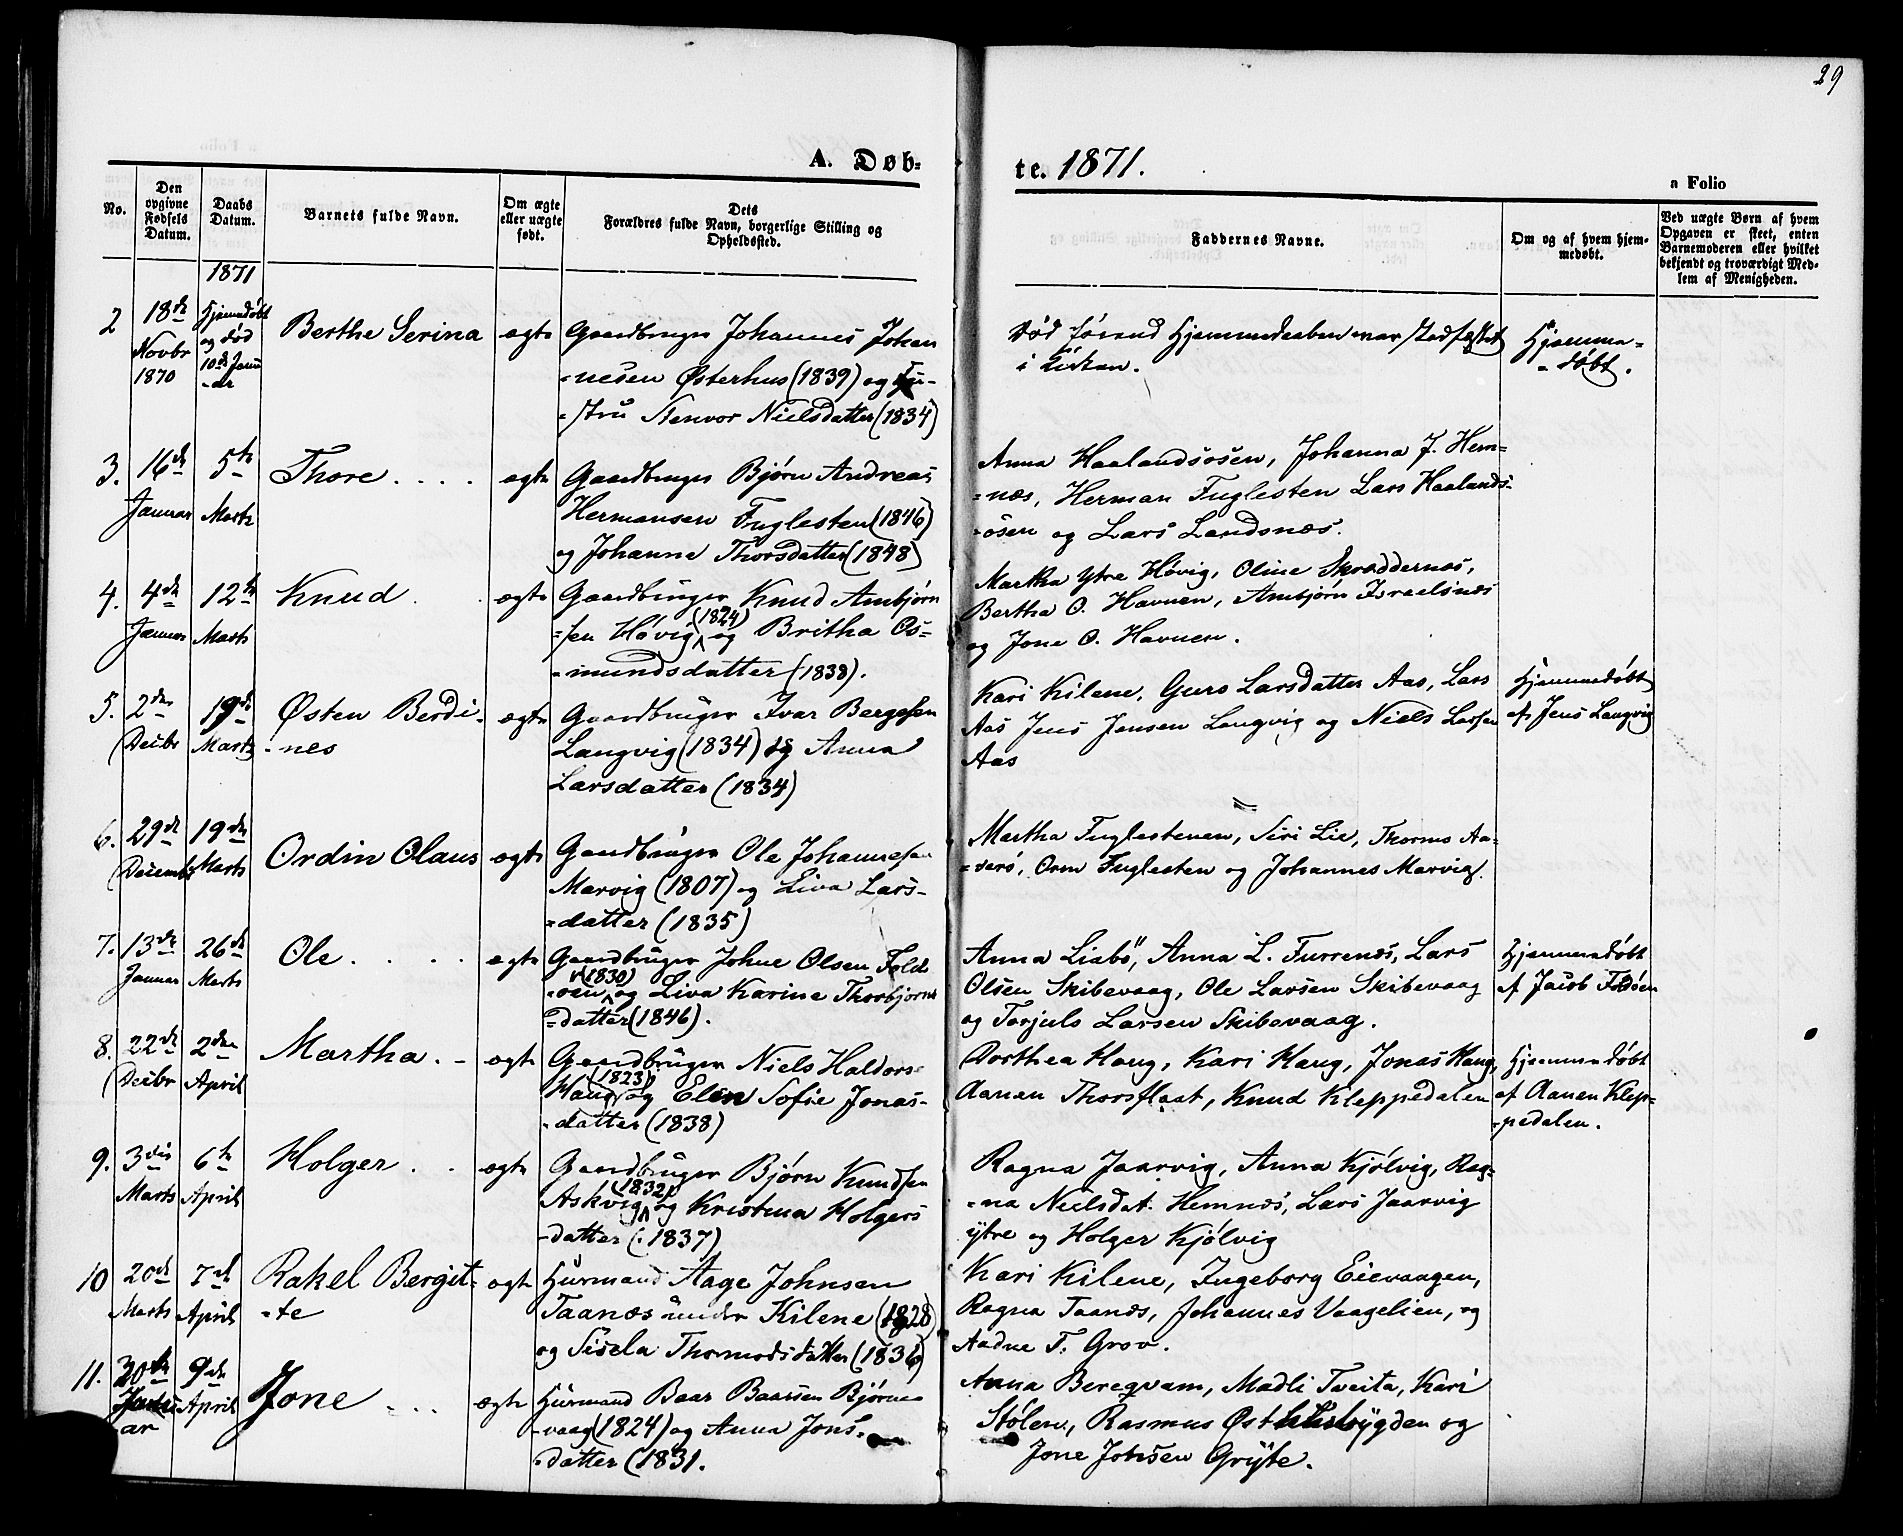 29
A. Døb-
te. 1871.
a Folio
No.
Den opgivne Fødsels Datum.
Daabs Datum.
Barnets fulde Navn.
Om ægte eller uægte født.
Dets Forældres fulde Navn, borgerlige Stilling og Opholdssted.
Faddernes Navne.
Om og af hvem hjemmedøbt.
Ved uægte Børn af hvem Opgaven er skeet, enten Barnemoderen eller hvilket bekjendt og troværdigt Medlem af Menigheden.
1871
2 18de Novbr 1870
Hjemmedøbt og død 10de Janu-ar
Berthe Serina
ægte
Gaardbruger Johannes Johan
-nesen Østerhus (1839) og Hu-
-stru Stenvor Nielsdatter (1834)
Død førend Hjemmedaaben var stadfæstet
i Kirken.
Hjemme-
-døbt.
3. 16de Januar
5te Marts
Thore . . . .
ægte
Gaardbruger Bjørn Andreas
Hermansen Fuglesten (1846)
og Johanne Thorsdatter (1848)
Anna Haalandsosen, Johanna J. Hem-
-næs, Herman Fuglesten Lars Haalands-
-osen og Lars Landsnæs.
4. 4de Januar
12te Marts
Knud . .
ægte
Gaardbruger Knud Ambjørn
-sen Høvig (1824) og Britha Os-
-mundsdatter (1838).
Martha Ytre Høvig, Oline Skræddernæs,
Bertha O. Havnen, Ambjørn Israelsnæs
og Jone O. Havnen.
5. 2den Decbr
19de Marts
Østen Berdi-
-nes
ægte
Gaardbruger Ivar Bergesen
Langvig (1834) og Anna
Larsdatter (1834)
Kari Kilene, Guro Larsdatter Aas, Lars
Aas Jens Jensen Langvig og Niels Larsen
Aas
Hjemmedøbt
af Jens Langvig
6. 29de Decembr
19de Marts
Ordin Olaus
ægte
Gaardbruger Ole Johannesen
Marvig (1807) og Liva Lars-
-datter (1835)
Martha Fuglestenen, Siri Lie, Thormo Aa-
-derø, Orm Fuglesten og Johannes Marvig.
7. 13de Januar
26de Marts
Ole . . . .
ægte
Gaardbruger Johne Olsen Fold
-øen (1830) og Liva Karine Thorbjørns
-datter (1846).
Anna Liabø, Anna L. Furrenæs, Lars
Olsen Skibevaag, Ole Larsen Skibevaag
og Torjuls Larsen Skibevaag.
Hjemmedøbt
af Jacob Foldøen
8. 22de Decbr
2den April
Martha . -
ægte
Gaardbruger Niels Haldors
Haug (1823) og Elen Sofie Jonas-
-datter (1838)
Dorthea Haug, Kari Haug, Jonas Haug,
Aanen Thorsflaat, Knud Kleppedalen
Hjemmedøbt
af Aanen Klep-
-pedalen.
9. 3die Marts
6te April
Holger . .
ægte
Gaardbruger Bjørn Knudsen
Askvig (1832) og Kristina Holgers
-datter (1837)
Ragna Jaarvig, Anna Kjølvig, Rag-
-na Nielsdat. Hemnæs, Lars Jaarvig
ytre og Holger Kjølvig
10 20de Marts
7de April
Rakel Bergit-
-te
ægte
Huurmand Aage Johnsen
Taanæs under Kilene (1828)
og Sisela Thormodsdatter (1836)
Kari Kilene, Ingeborg Eievaagen,
Ragna Taanæs, Johannes Vaagelien, og
Aadne T. Grov.
11. 30te Janu-ar
9de April
Jone . . .
ægte
Huurmand Baar Baarsen Bjørne
-vaag (1824) og Anna Jons-
-datter (1831.
Anna Beregvam, Madli Tveita, Kari
Stølen, Rasmus Østhusbygden og
Jone Johsen Gryte.